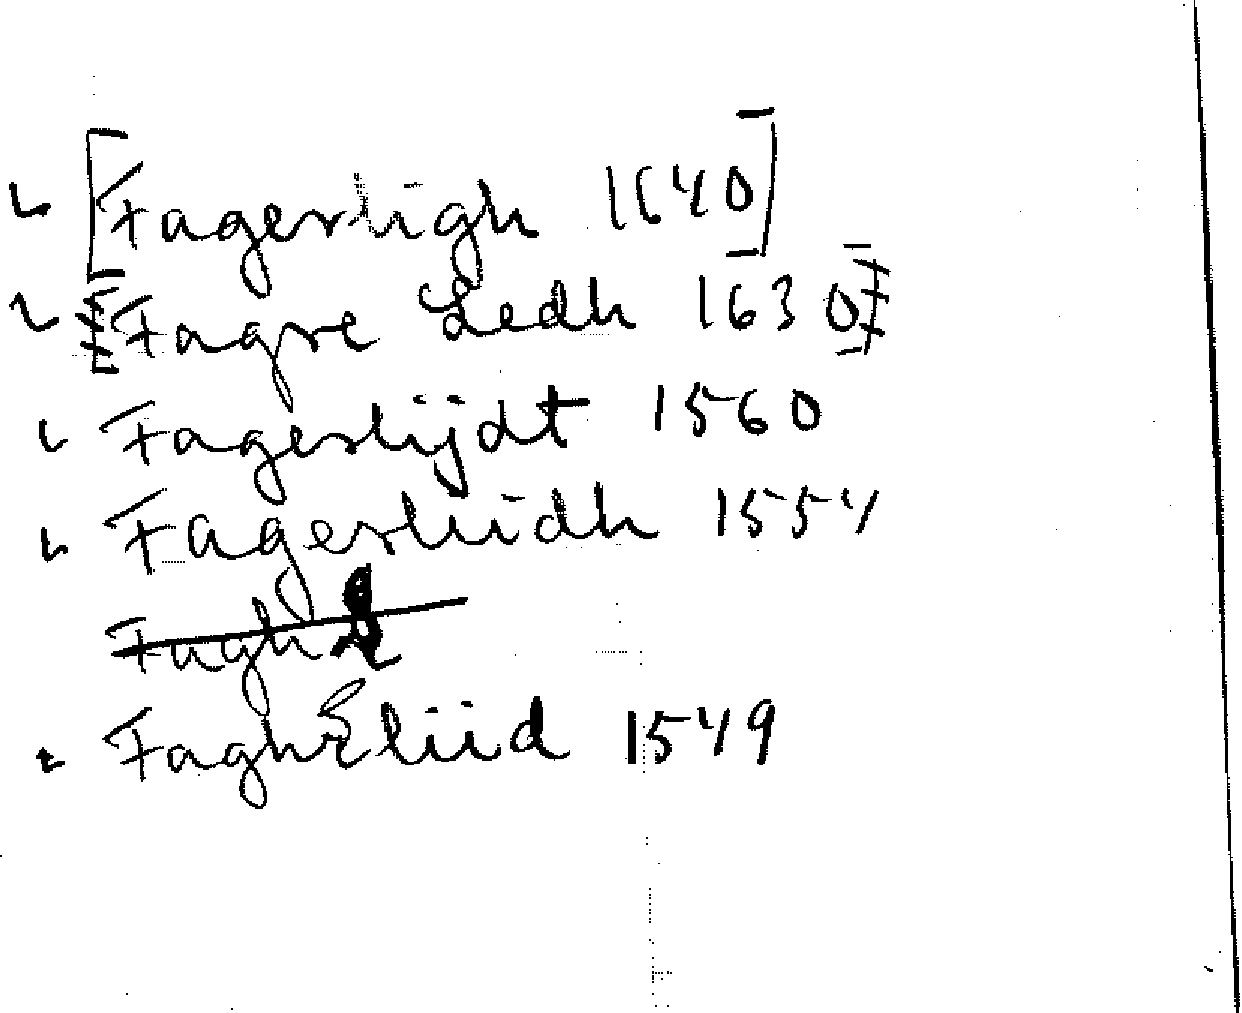 [Fagerligh 1640]
[Fagre Ledh 1630]
Fagerlijdt 1560
Fagerliidh 1554
Fagh
FaghEliid 1549